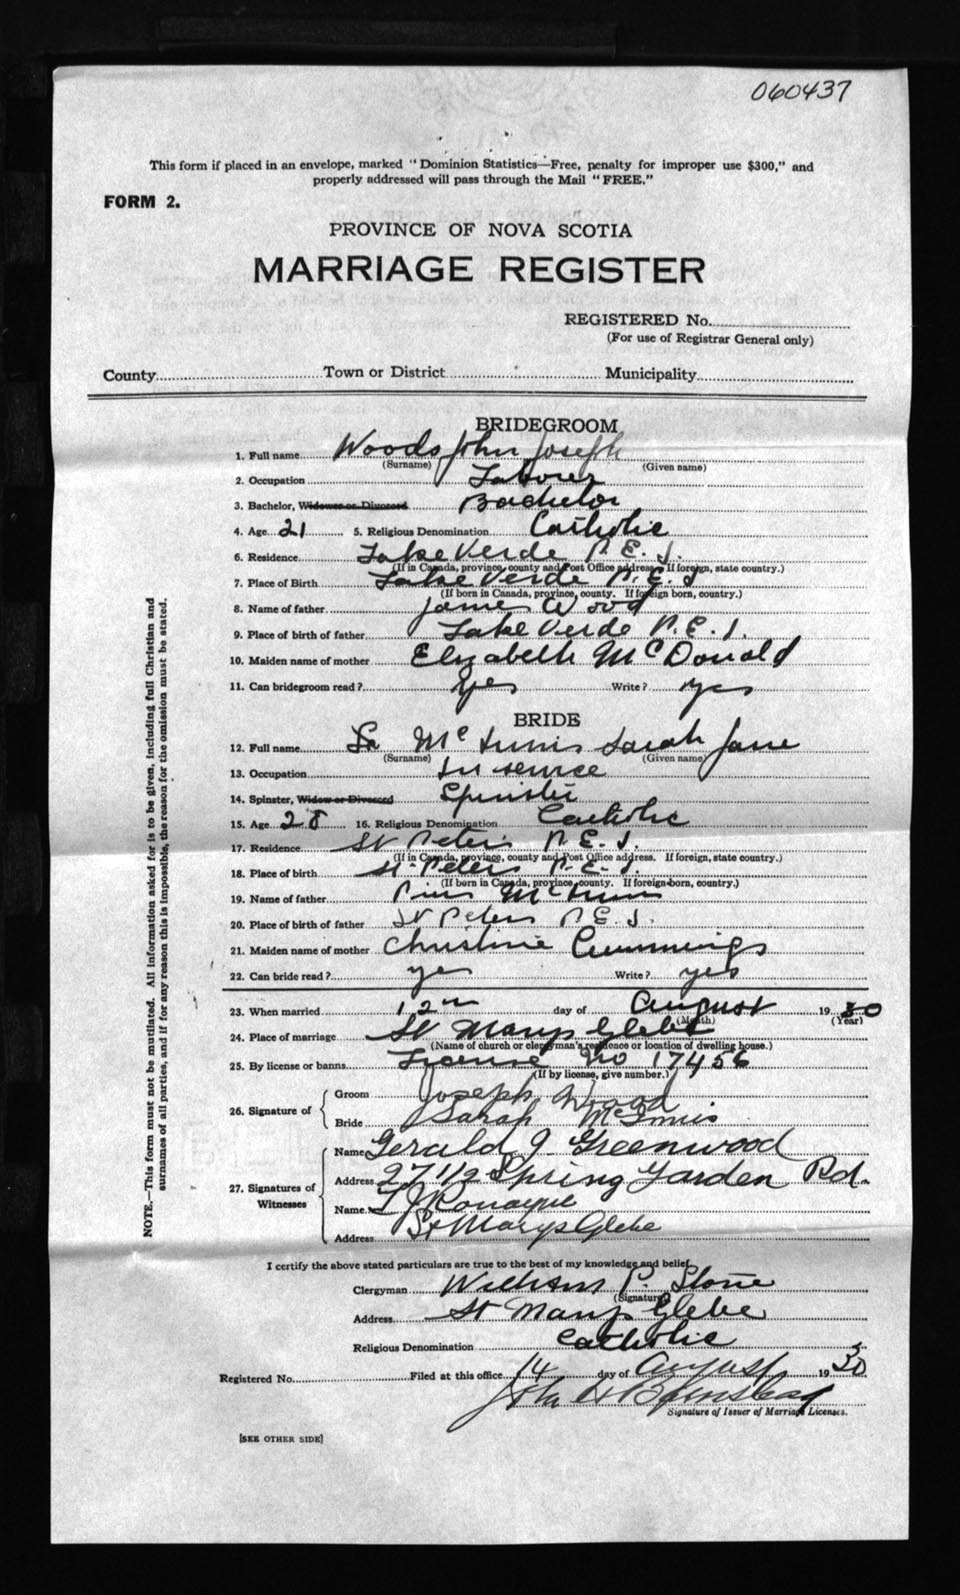 060437
This form if placed in an envelope, marked "Dominion Statistics—Free, penalty for improper use $300," and
properly addressed will pass through the Mail "FREE."
FORM 2.
PROVINCE OF NOVA SCOTIA
MARRIAGE REGISTER
REGISTERED No.
(For use of Registrar General only)
County Town or District Municipality
BRIDEGROOM
1. Full name Woods John Joseph
(Surname) (Given name)
2. Occupation Labourer
3. Bachelor, Widower or Divorced Bachelor
4. Age 21 5. Religious Denomination Catholic
6. Residence Lake Verde P. E. I.
(If in Canada, province, county and Post Office address. If foreign, state country.)
7. Place of Birth Lake Verde P. E. I
(If born in Canada, province, county. If foreign born, country.)
8. Name of father James Wood
9. Place of birth of father Lake Verde P. E. I.
10. Maiden name of mother Elizabeth McDonald
11. Can bridegroom read? Yes Write? yes
BRIDE
12. Full name McInnis Sarah Jane
(Surname) (Given name)
13. Occupation In service
14. Spinster, Widow or Divorced Spinster
15. Age 28 16. Religious Denomination Catholic
17. Residence St Peters P. E. I.
(If in Canada, province, county and Post Office address. If foreign, state country.)
18. Place of birth St. Peters P. E. I.
(If born in Canada, province, county. If foreign born, country.)
19. Name of father Pius McInnis
20. Place of birth of father St Peters P. E. I.
21. Maiden name of mother Christine Cummings
22. Can bride read? yes Write? yes
23. When married 12th day of August 1930
(Month) (Year)
24. Place of marriage St Marys Glebe
(Name of church or clergyman's residence or location of dwelling house.)
25. By license or banns License No 17456
(If by license, give number.)
26. Signature of Groom Joseph Wood
Bride Sarah McInnis
27. Signatures of Witnesses Name Gerald J. Greenwood
Address 27 1/2 Spring Garden Rd.
Name Ronayne
Address St Marys Glebe
I certify the above stated particulars are true to the best of my knowledge and belief.
Clergyman William P. Stone
(Signature)
Address St Marys Glebe
Religious Denomination Catholic
Registered No. Filed at this office 14 day of August 1930
John
Signature of Issuer of Marriage Licenses.
[SEE OTHER SIDE]
NOTE.—This form must not be mutilated. All information asked for is to be given, including full Christian and
surnames of all parties, and if for any reason this is impossible, the reason for the omission must be stated.